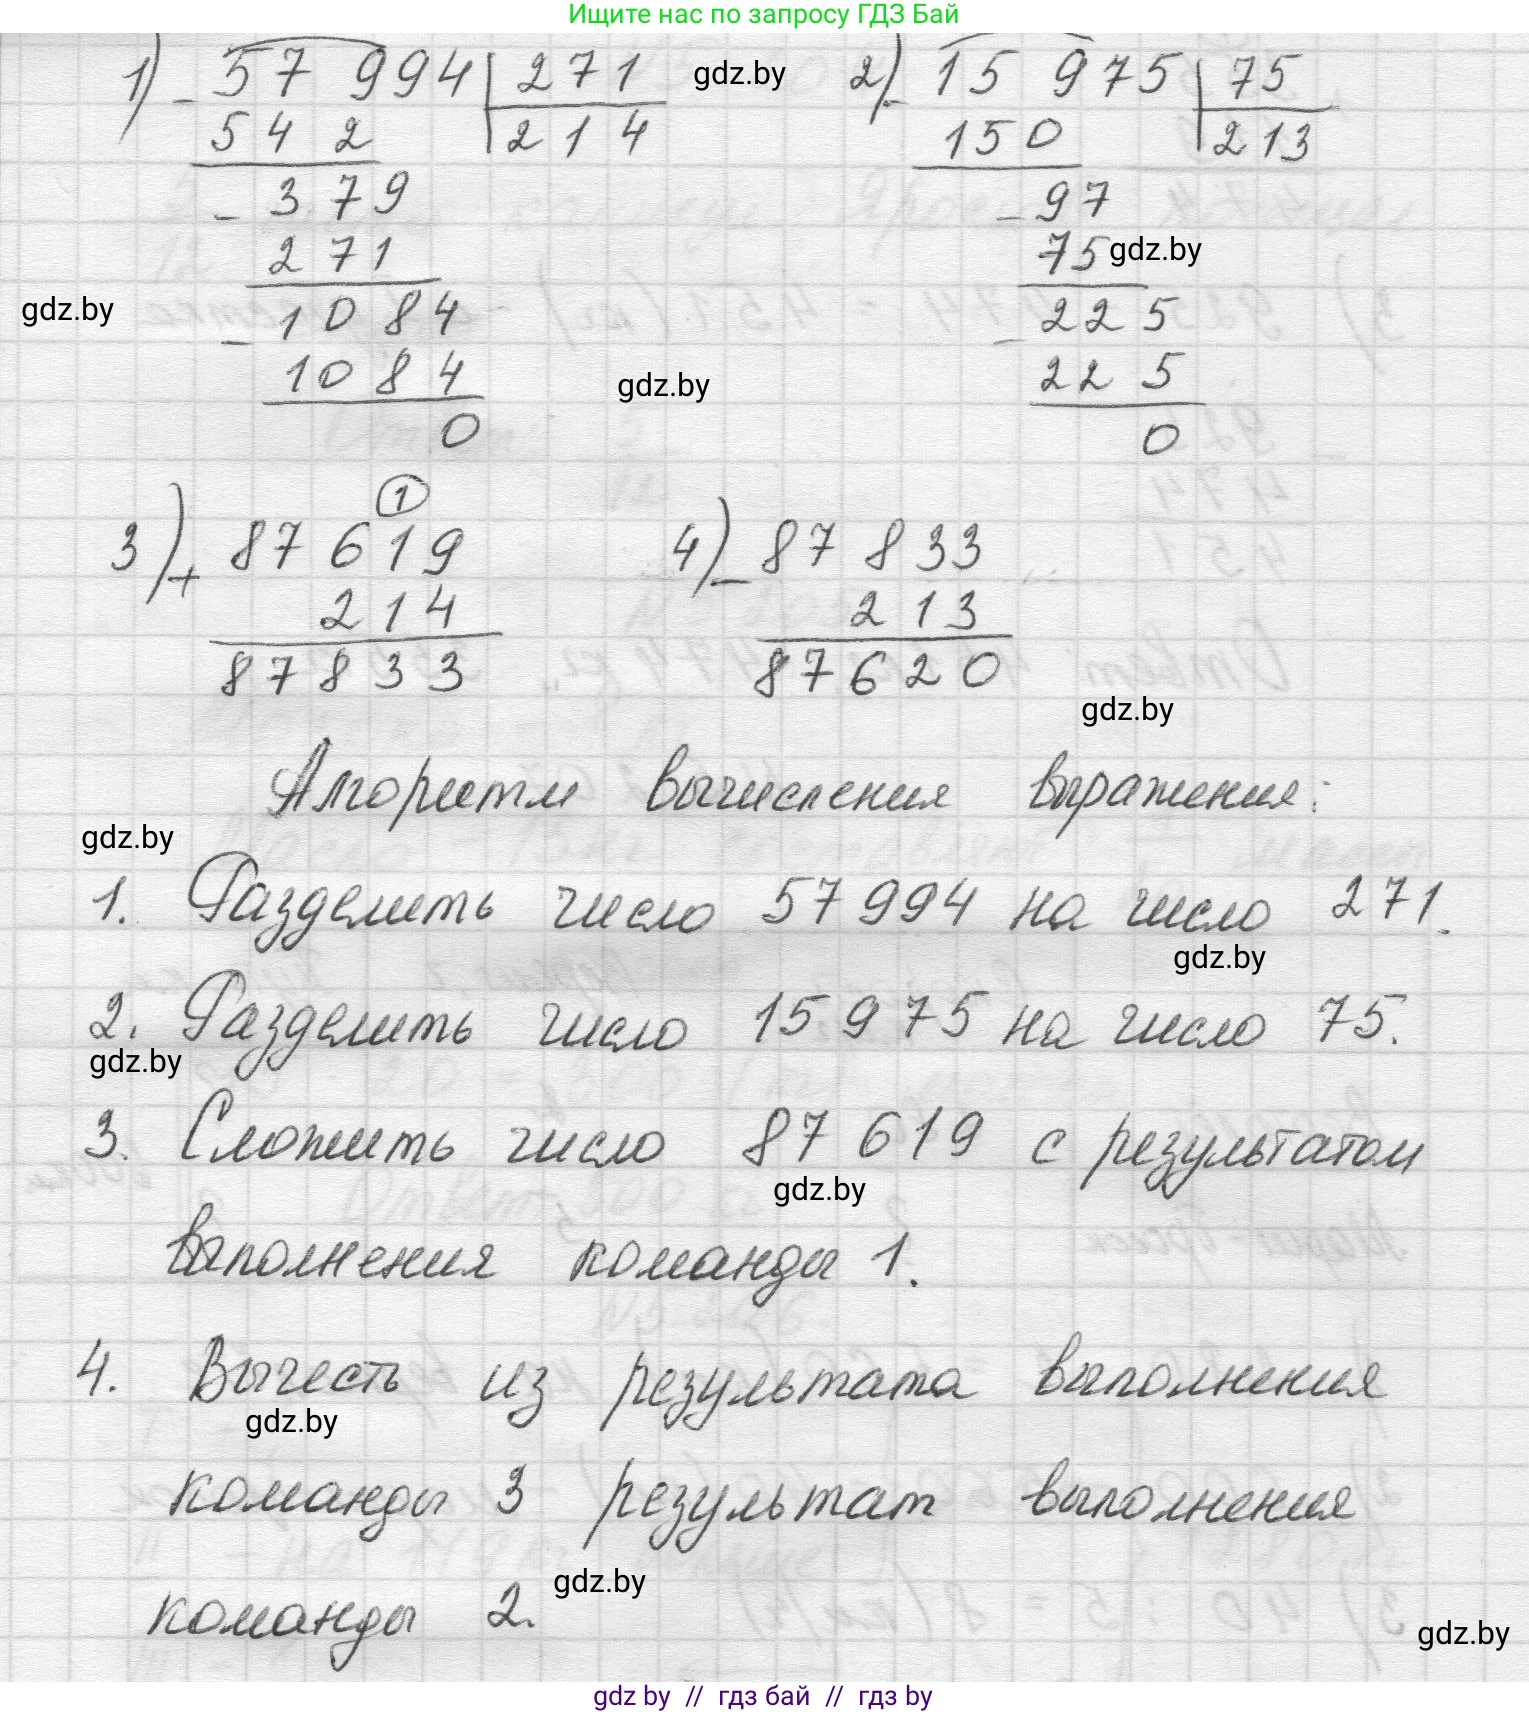 Ищите нас по запросу ГДЗ Бай
1) - 57 994 | 271 gdz.by 2) - 15 975 | 75
542 214 150 213
- 379 - 97
271 75 gdz.by
gdz.by - 1084 - 225
1084 gdz.by 225
0 0
1
3) + 87 619 4) - 87 833
214 213
87833 87620
gdz.by
Алгоритм вычисления выражения:
gdz.by
1. Разделить число 57 994 на число 271.
gdz.by
2. Разделить число 15 975 на число 75.
gdz.by
3. Сложить число 87 619 с результатом
gdz.by
выполнения команды 1.
4. Вычесть из результата выполнения
gdz.by
команды 3 результат выполнения
gdz.by
команды 2.
gdz.by
gdz by // гдз бай // гдз by